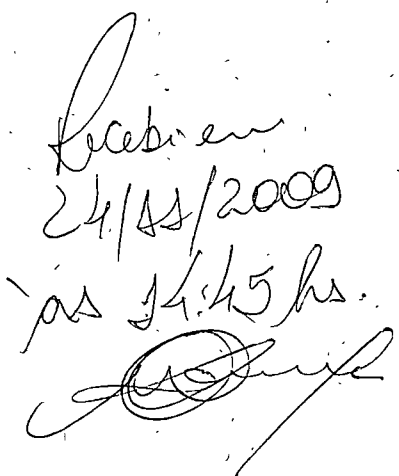 Recebi em
24/11/2009
às 14:45 hs.